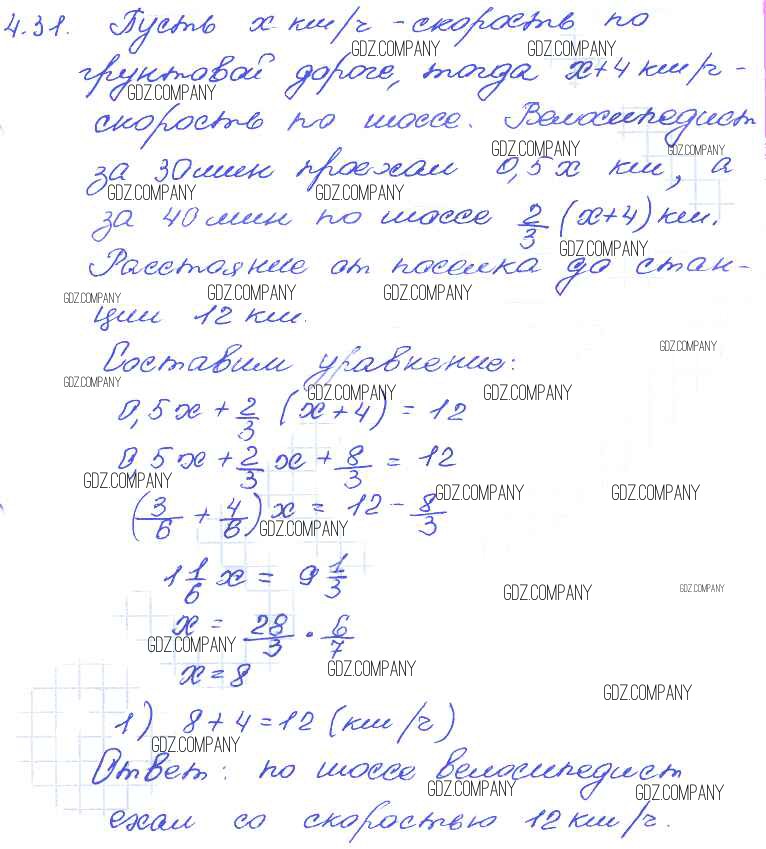 4.31. Пусть x км/ч - скорость по
GDZ.COMPANY GDZ.COMPANY
грунтовой дороге, тогда x+4 км/ч -
GDZ.COMPANY
скорость по шоссе. Велосипедист
GDZ.COMPANY GDZ.COMPANY
за 30 мин проехал 0,5x км, а
GDZ.COMPANY GDZ.COMPANY
за 40 мин по шоссе 2/3 (x+4) км.
GDZ.COMPANY
Расстояние от поселка до стан-
GDZ.COMPANY GDZ.COMPANY GDZ.COMPANY
ции 12 км.
GDZ.COMPANY
Составим уравнение:
GDZ.COMPANY GDZ.COMPANY GDZ.COMPANY
0,5x + 2/3 (x+4) = 12
0,5x + 2/3 x + 8/3 = 12
GDZ.COMPANY GDZ.COMPANY GDZ.COMPANY
(3/6 + 4/6) x = 12 - 8/3
GDZ.COMPANY
1 1/6 x = 9 1/3
GDZ.COMPANY GDZ.COMPANY
x = 28/3 · 6/7
GDZ.COMPANY GDZ.COMPANY
x = 8
GDZ.COMPANY
1) 8 + 4 = 12 (км/ч)
GDZ.COMPANY
Ответ: по шоссе велосипедист
GDZ.COMPANY GDZ.COMPANY
ехал со скоростью 12 км/ч.